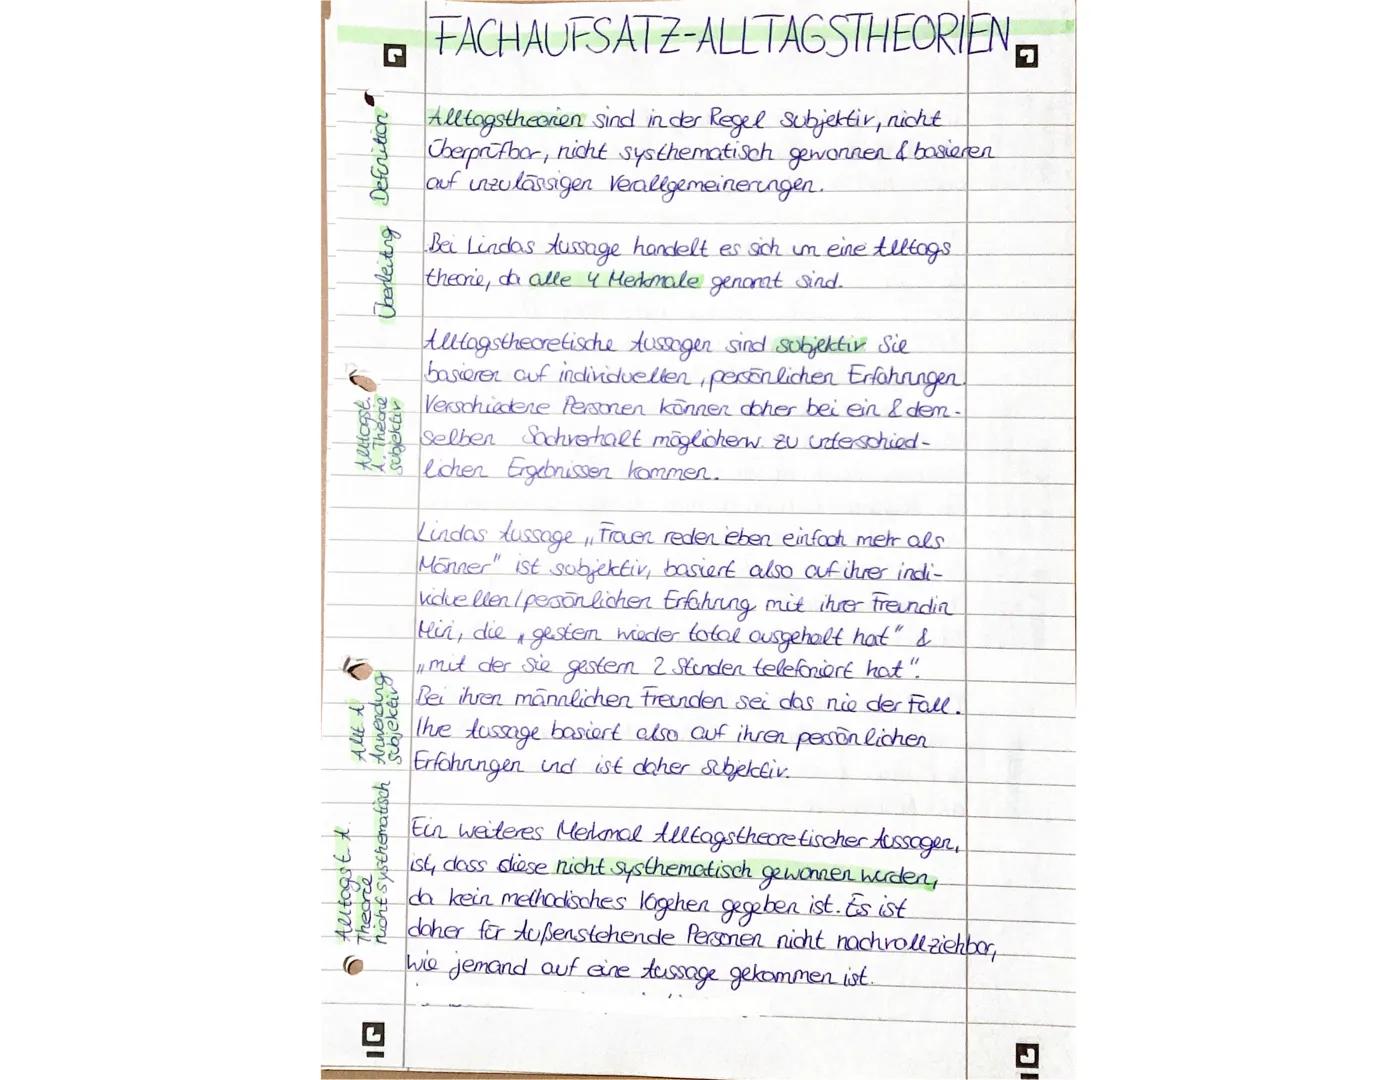 FACHAUFSATZ-ALLTAGSTHEORIEN
Definition
Alltagstheorien sind in der Regel subjektiv, nicht
Überprüfbar, nicht systhematisch gewonnen & basieren
auf unzulässigen Verallgemeinerungen.
Überleitung
Bei Lindas Aussage handelt es sich um eine Alltags
theorie, da alle 4 Merkmale genannt sind.
Alltagst.
A. Theorie
subjektiv
Alltagstheoretische Aussagen sind subjektiv Sie
basieren auf individuellen, persönlichen Erfahrungen.
Verschiedene Personen können daher bei ein & dem-
selben Sachverhalt möglicherw. zu unterschied-
lichen Ergebnissen kommen.
Lindas Aussage „Frauen reden eben einfach mehr als
Männer" ist subjektiv, basiert also auf ihrer indi-
viduellen/persönlichen Erfahrung mit ihrer Freundin
Miri, die „gestern wieder total ausgeholt hat" &
„mit der sie gestern 2 Stunden telefoniert hat".
Bei ihren männlichen Freunden sei das nie der Fall.
Ihre Aussage basiert also auf ihren persönlichen
Erfahrungen und ist daher subjektiv.
Allt A
Anwendung
subjektiv
Alltagst. A.
Theorie
nicht systhematisch
Ein weiteres Merkmal Alltagstheoretischer Aussagen,
ist, dass diese nicht systhematisch gewonnen wurden,
da kein methodisches Vogehen gegeben ist. Es ist
daher für Außenstehende Personen nicht nachvollziehbar,
wie jemand auf eine Aussage gekommen ist.